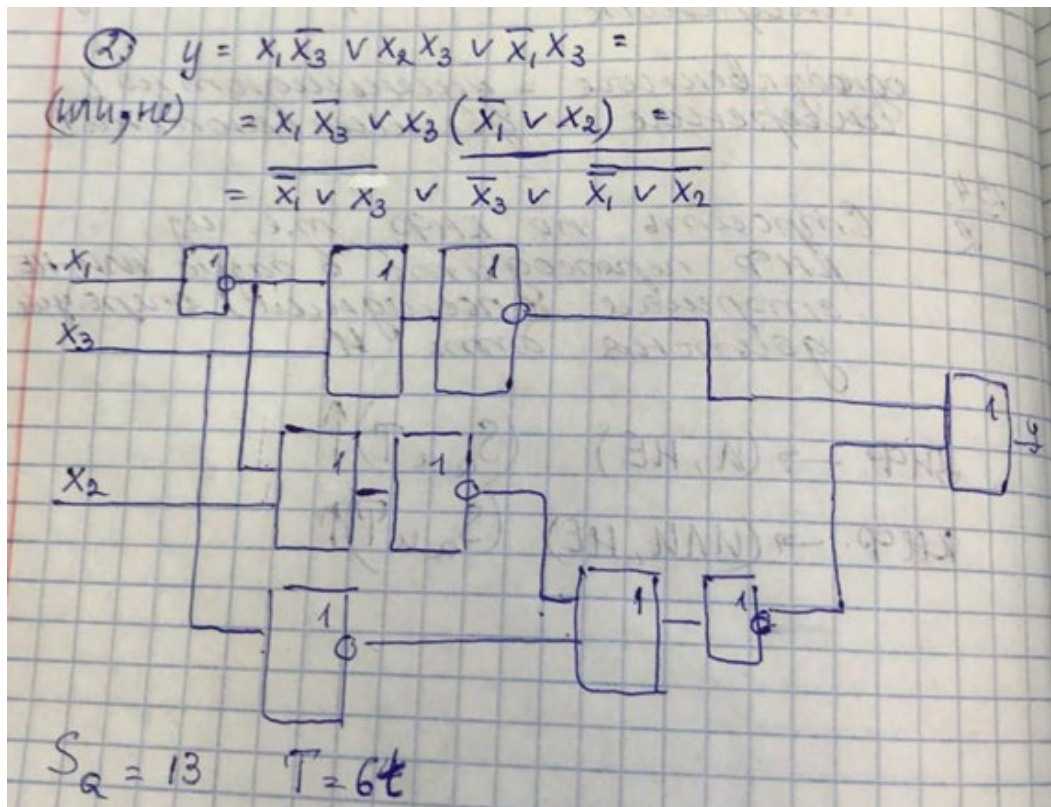 ② y = x₁x̄₃ ∨ x₂x₃ ∨ x̄₁x₃ =
(или, не) = x₁x̄₃ ∨ x₃(x̄₁ ∨ x₂) =
= \overline{x̄₁ ∨ x₃} ∨ \overline{x̄₃ ∨ \overline{x̄₁ ∨ x₂}}
x₁ 1 1 1
x₃
1
y
x₂ 1 1
1 1 1
S_Q = 13 T = 6t